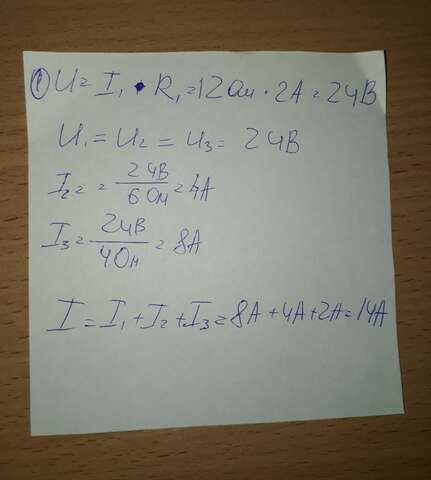 ① U = I₁ · R₁ = 12 Ом · 2А = 24В
U₁ = U₂ = U₃ = 24В
I₂ = = 24В/6 Ом = 4А
I₃ = 24В/4 Ом = 8А
I = I₁ + I₂ + I₃ = 8А + 4А + 2А = 14А